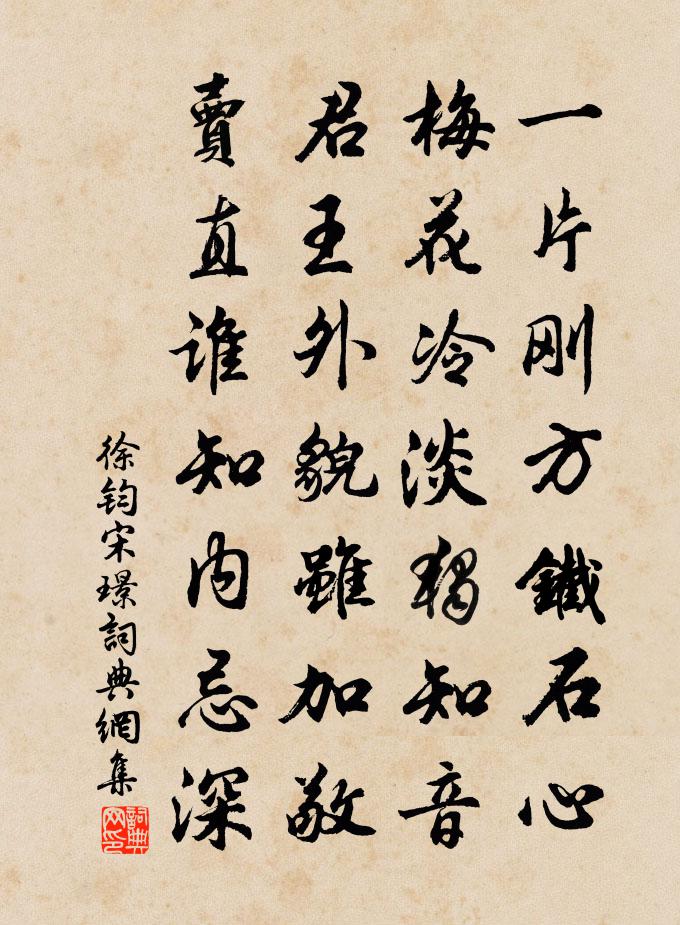 一片刚方鐵石心
梅花冷淡獨知音
君王外貌雖加敬
賣直誰知内忌深
徐鈞宋璟詞典網集
詞典網印